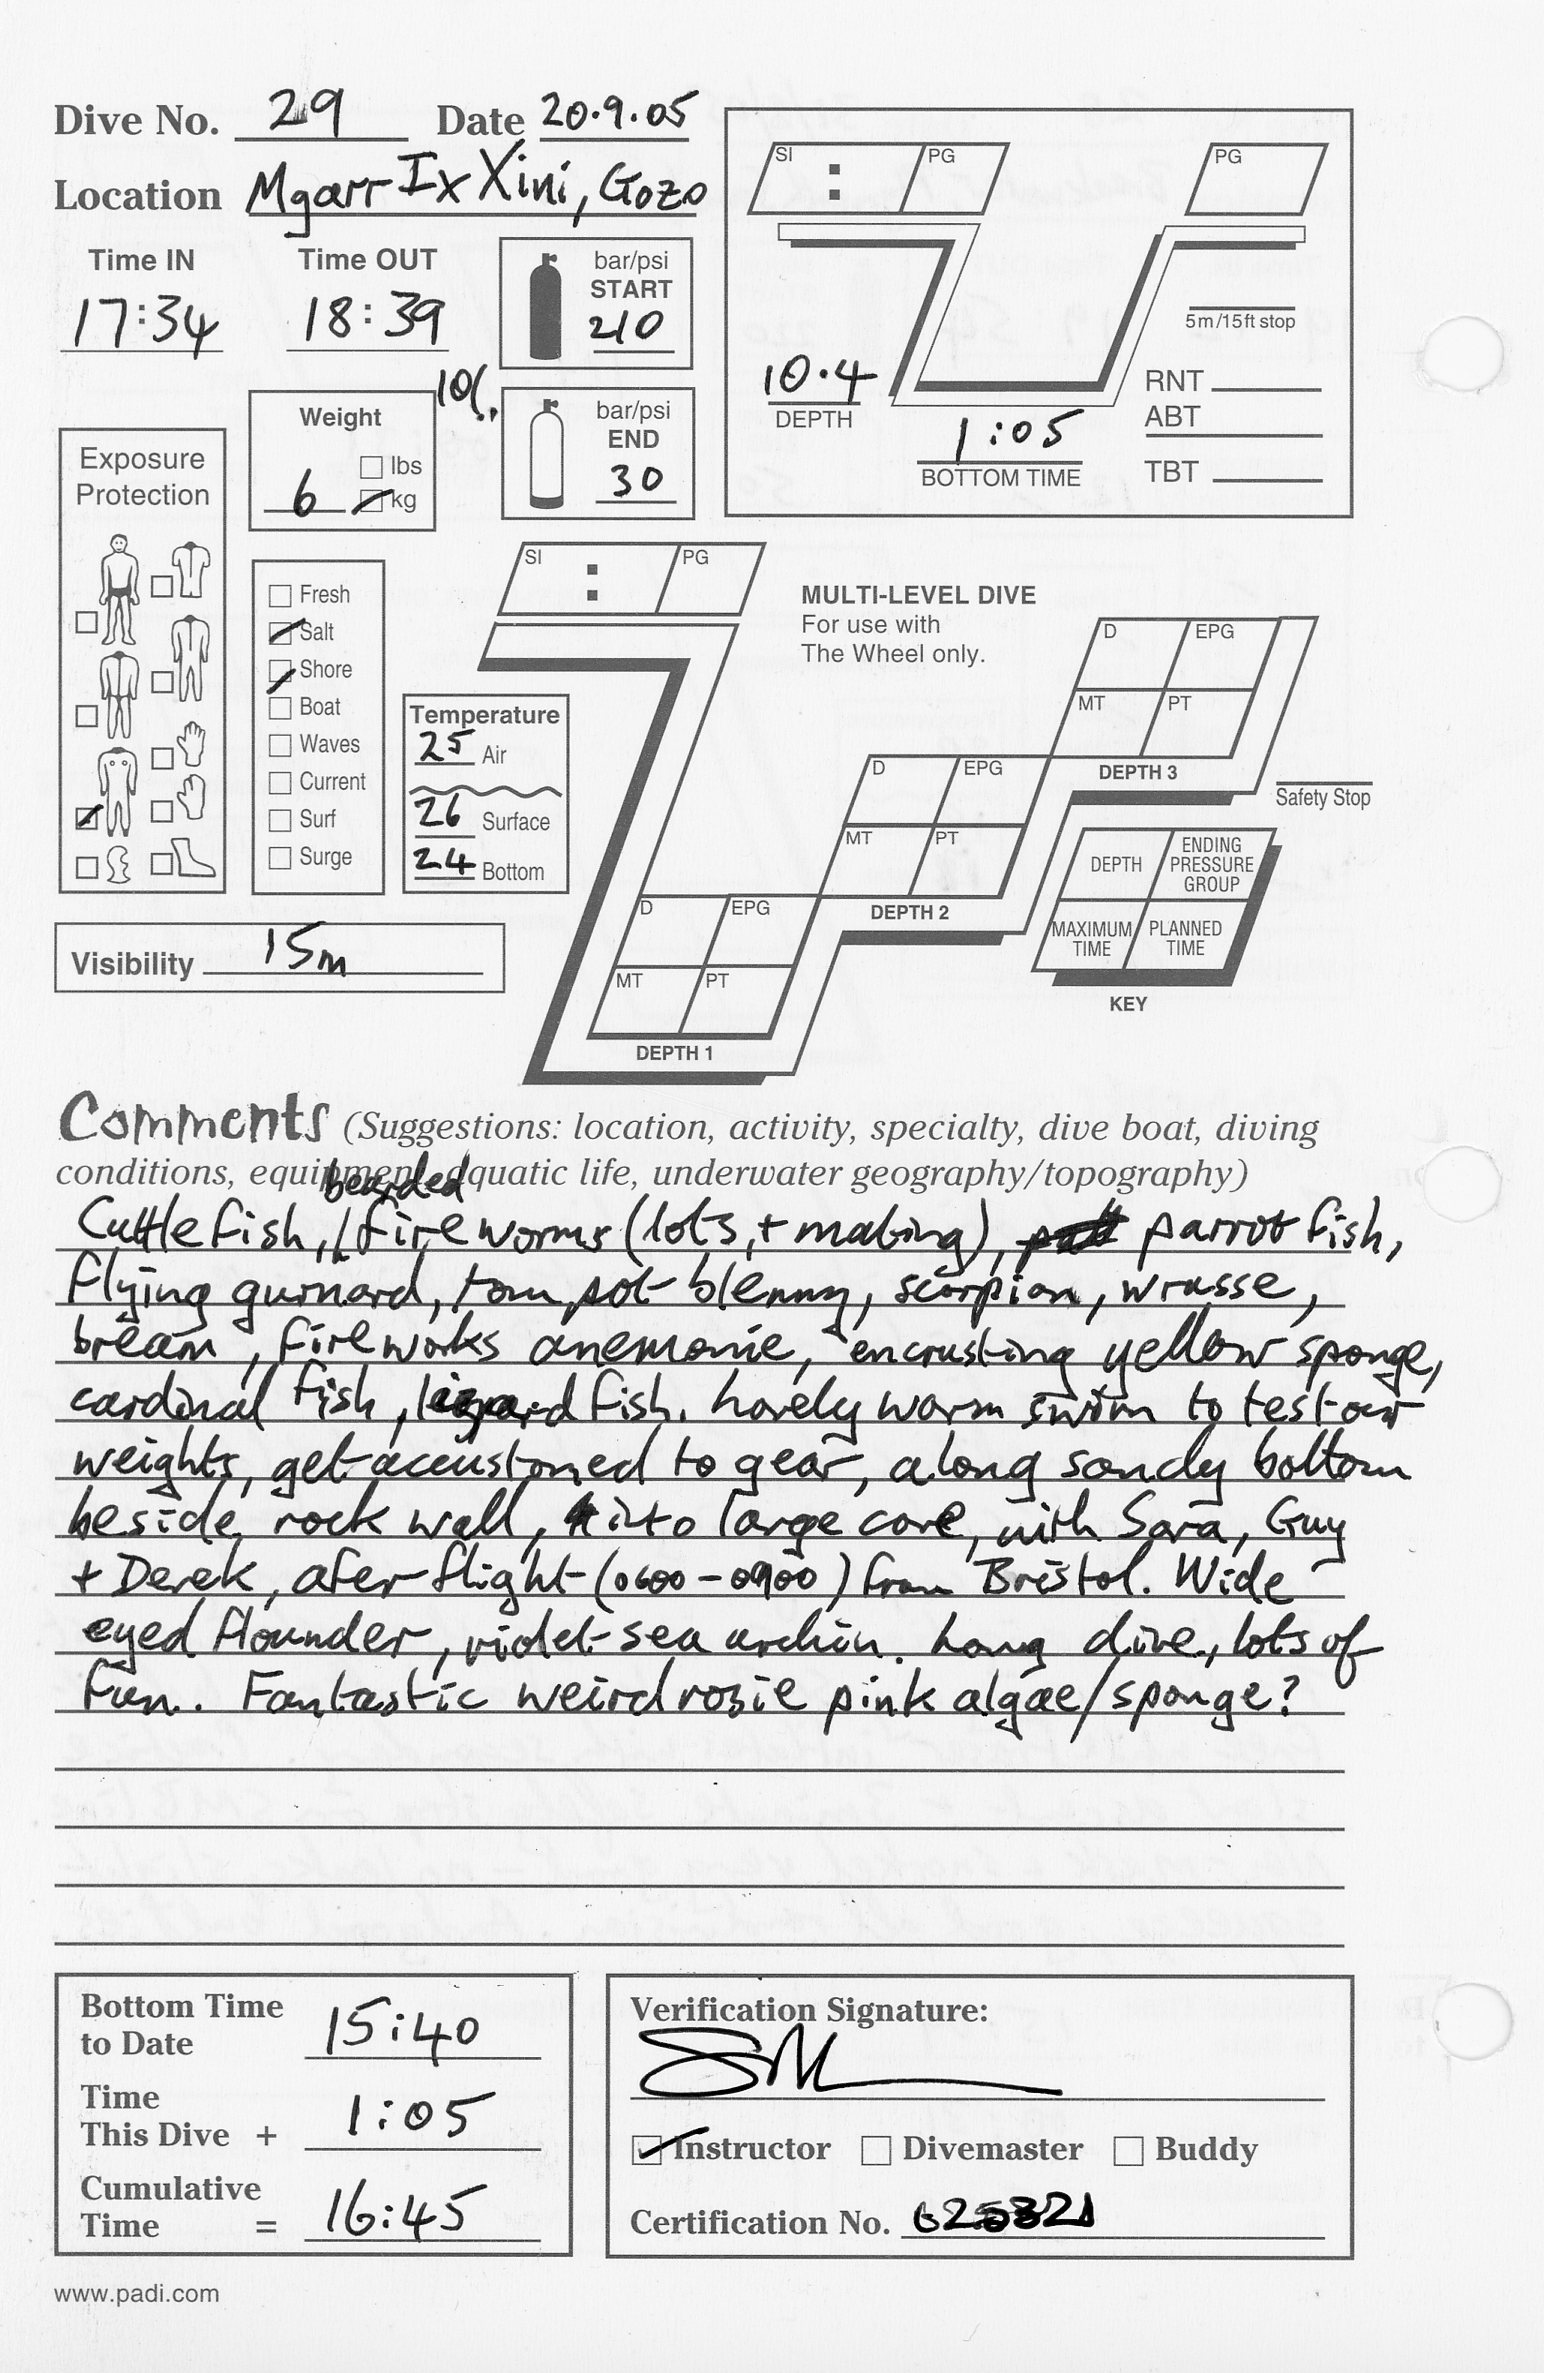 Dive No. 29 Date 20.9.05
Location Mgarr Ix Xini, Gozo
Time IN Time OUT
17:34 18:39
bar/psi
START
210
10l.
bar/psi
END
30
Weight
lbs
6 kg
SI : PG PG
5m/15ft stop
10.4
DEPTH
1:05
BOTTOM TIME
RNT
ABT
TBT
Exposure
Protection
Fresh
Salt
Shore
Boat
Waves
Current
Surf
Surge
Temperature
25 Air
26 Surface
24 Bottom
Visibility 15m
SI : PG
MULTI-LEVEL DIVE
For use with
The Wheel only.
D EPG
MT PT
DEPTH 3
D EPG
MT PT
DEPTH 2
D EPG
MT PT
DEPTH 1
Safety Stop
DEPTH ENDING PRESSURE GROUP
MAXIMUM TIME PLANNED TIME
KEY
Comments (Suggestions: location, activity, specialty, dive boat, diving
conditions, equipment, aquatic life, underwater geography/topography)
bearded
Cuttlefish, fireworms (lots, + mating), parrot fish,
flying gurnard, tom pot blenny, scorpion, wrasse,
bream, fireworks anemonie, encrusting yellow sponge,
cardinal fish, lizard fish. Lovely warm swim to test out
weights, get accustomed to gear, along sandy bottom
beside rock wall, into large cave, with Sara, Guy
+ Derek, afer flight (0600 - 0900) from Bristol. Wide
eyed flounder, violet sea urchin. Long dive, lots of
fun. Fantastic weird rosie pink algae/sponge?
Bottom Time
to Date 15:40
Time
This Dive + 1:05
Cumulative
Time = 16:45
Verification Signature:
Instructor Divemaster Buddy
Certification No.
www.padi.com